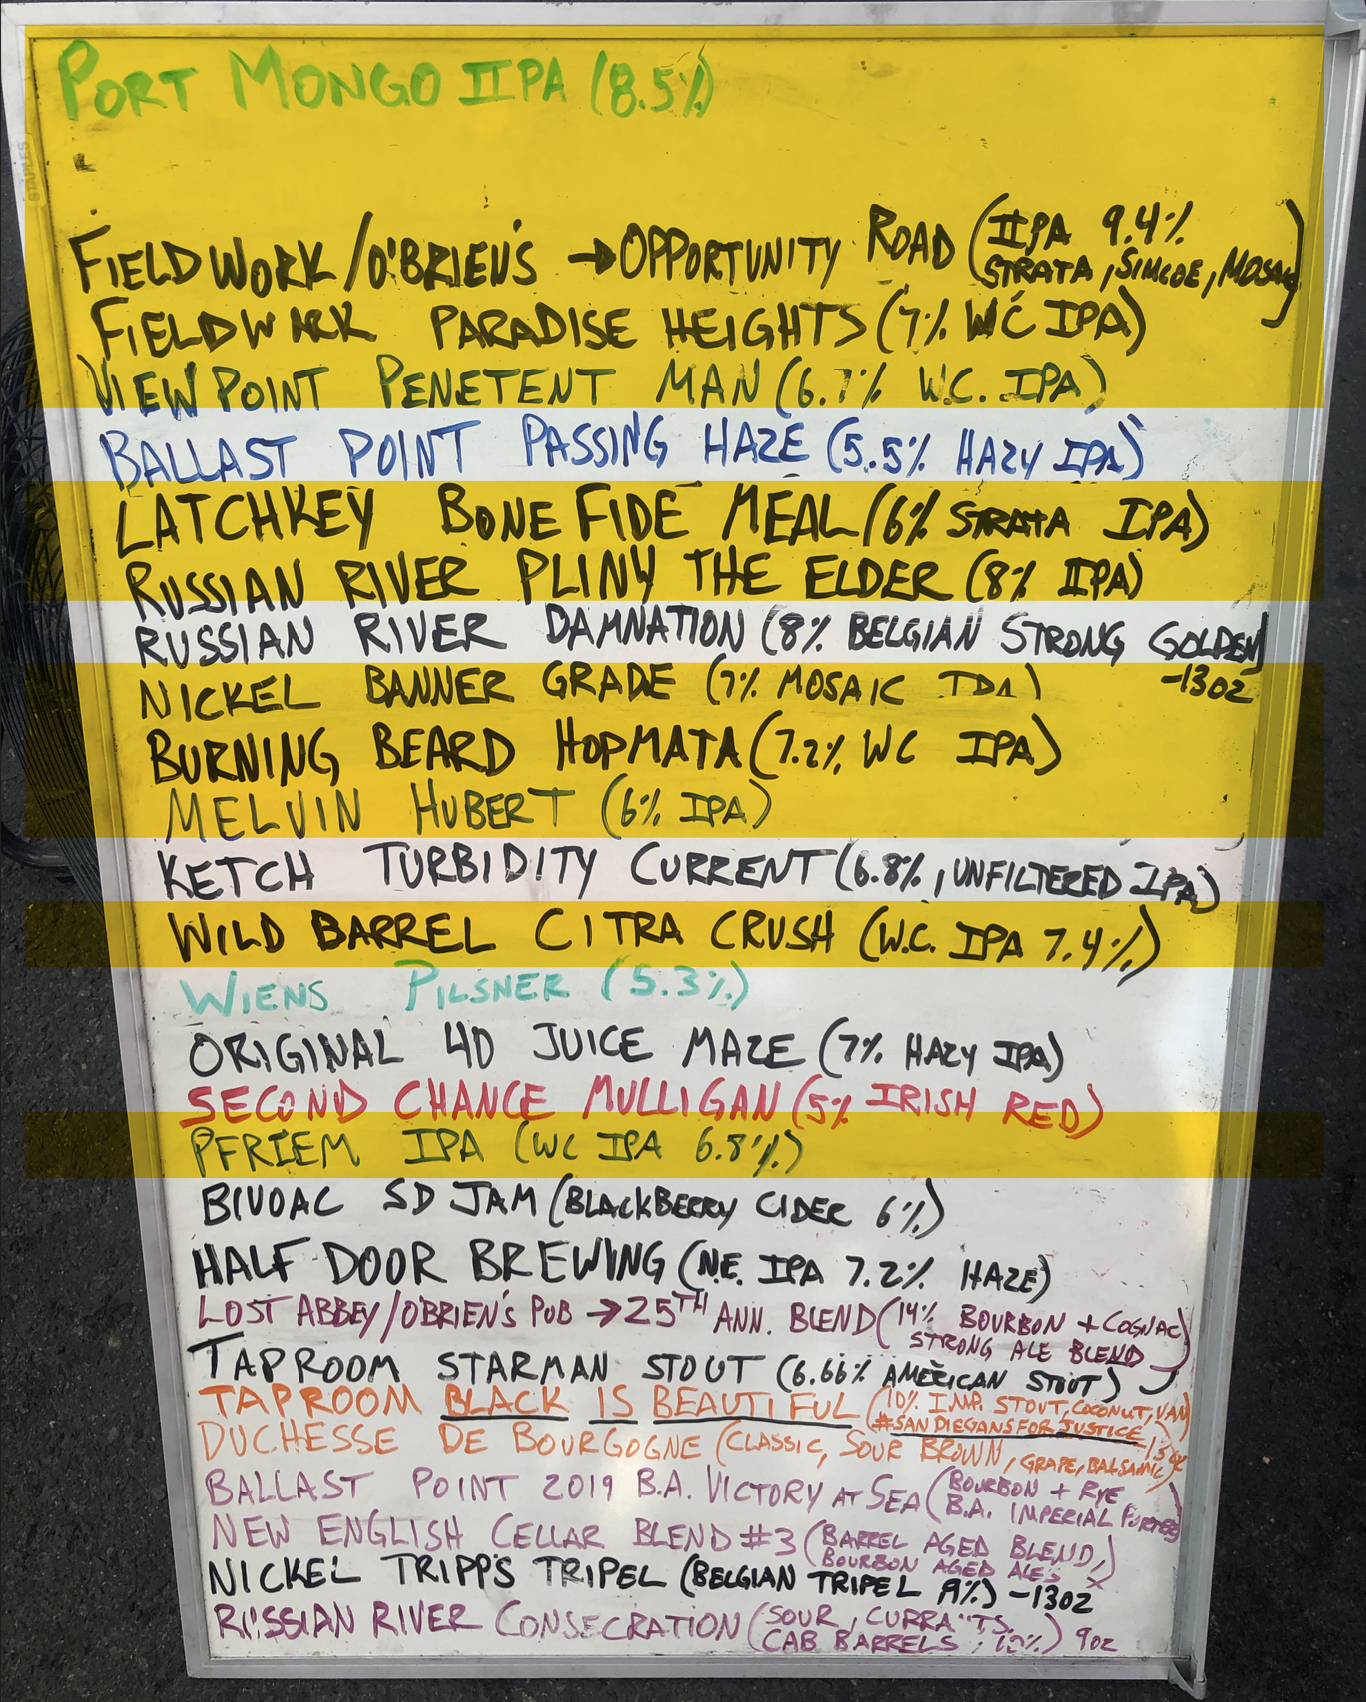 PORT MONGO IIPA (8.5%)
FIELDWORK/O'BRIEN'S →OPPORTUNITY ROAD (IIPA 9.4%
STRATA, SIMCOE, MOSAIC)
FIELDWORK PARADISE HEIGHTS (7% WC IPA)
VIEWPOINT PENETENT MAN (6.7% W.C. IPA)
BALLAST POINT PASSING HAZE (5.5% HAZY IPA)
LATCHKEY BONE FIDE MEAL (6% STRATA IPA)
RUSSIAN RIVER PLINY THE ELDER (8% IIPA)
RUSSIAN RIVER DAMNATION (8% BELGIAN STRONG GOLDEN)
-13OZ
NICKEL BANNER GRADE (7% MOSAIC IPA)
BURNING BEARD HOPMATA (7.2% WC IPA)
MELVIN HUBERT (6% IPA)
KETCH TURBIDITY CURRENT (6.8%, UNFILTERED IPA)
WILD BARREL CITRA CRUSH (W.C. IPA 7.4%)
WIENS PILSNER (5.3%)
ORIGINAL 40 JUICE MAZE (7% HAZY IPA)
SECOND CHANCE MULLIGAN (5% IRISH RED)
PFRIEM IPA (WC IPA 6.8%)
BIVOAC SD JAM (BLACKBERRY CIDER 6%)
HALF DOOR BREWING (N.E. IPA 7.2% HAZE)
LOST ABBEY/O'BRIEN'S PUB →25TH ANN. BLEND (14% BOURBON + COGNAC
STRONG ALE BLEND)
TAPROOM STARMAN STOUT (6.66% AMERICAN STOUT)
TAPROOM BLACK IS BEAUTIFUL (10% IMP. STOUT, COCONUT, VAN)
#SANDIEGANSFORJUSTICE
DUCHESSE DE BOURGOGNE (CLASSIC, SOUR BROWN, GRAPE, BALSAMIC)
BALLAST POINT 2019 B.A. VICTORY AT SEA (BOURBON + RYE
B.A. IMPERIAL PORTER)
NEW ENGLISH CELLAR BLEND #3 (BARREL AGED BLEND,
BOURBON AGED ALES)
NICKEL TRIPP'S TRIPEL (BELGIAN TRIPEL 9%) -13OZ
RUSSIAN RIVER CONSECRATION (SOUR, CURRANTS,
CAB BARRELS, 10%) 9OZ